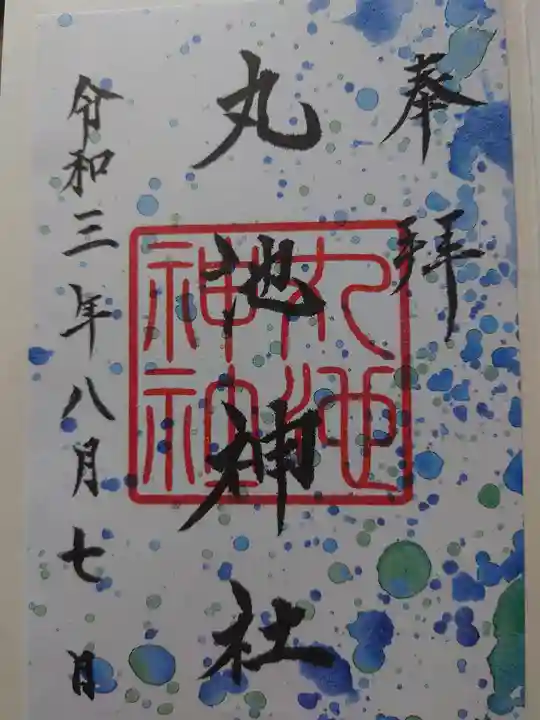 奉拝
丸池神社
丸池
神社
令和三年八月七日